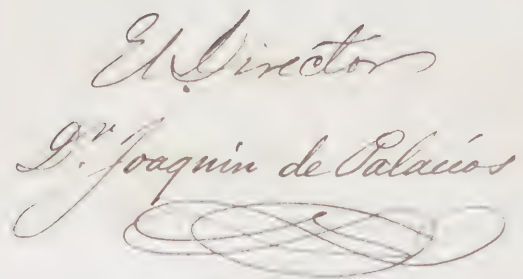 El Director
D.r Joaquin de Palacios